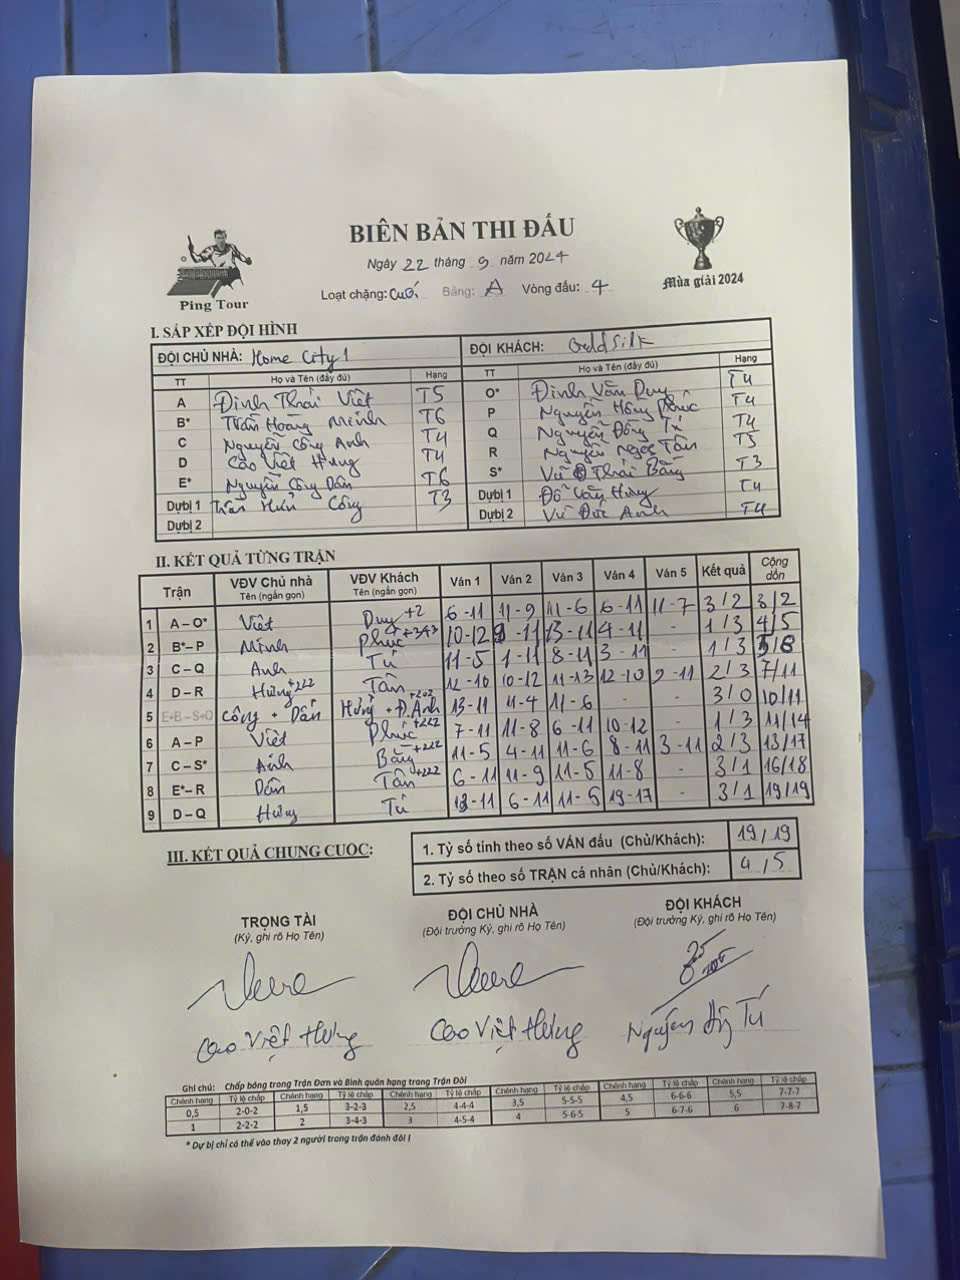 BIÊN BẢN THI ĐẤU
Ngày 22 tháng 9 năm 2024
Loạt chặng: Cuối Bảng: A Vòng đấu: 4
Ping Tour
Mùa giải 2024
I. SẮP XẾP ĐỘI HÌNH
ĐỘI CHỦ NHÀ: Home City 1 ĐỘI KHÁCH: Gold Silk
TT Họ và Tên (đầy đủ) Hạng TT Họ và Tên (đầy đủ) Hạng
A Đinh Thái Việt T5 O* Đinh Văn Duy T4
B* Trần Hoàng Minh T6 P Nguyễn Hồng Phúc T4
C Nguyễn Công Anh T4 Q Nguyễn Đông Tú T4
D Cao Việt Hưng T4 R Nguyễn Ngọc Tân T5
E* Nguyễn Công Dân T6 S* Vũ Thái Bằng T3
Dự bị 1 Trần Hữu Công T3 Dự bị 1 Đỗ Văn Hưng T4
Dự bị 2 Dự bị 2 Vũ Đức Anh T4
II. KẾT QUẢ TỪNG TRẬN
Trận VĐV Chủ nhà Tên (ngắn gọn) VĐV Khách Tên (ngắn gọn) Ván 1 Ván 2 Ván 3 Ván 4 Ván 5 Kết quả Cộng dồn
1 A – O* Việt Duy +2 6-11 11-9 11-6 6-11 11-7 3/2 3/2
2 B* – P Minh Phúc +343 10-12 9-11 13-11 4-11 - 1/3 4/5
3 C – Q Anh Tú 11-5 1-11 8-11 3-11 - 1/3 5/8
4 D – R Hưng +222 Tân 12-10 10-12 11-13 12-10 9-11 2/3 7/11
5 E+B – S+O Công + Dân Hưng + Đ.Anh +202 13-11 11-4 11-6 - - 3/0 10/11
6 A – P Việt Phúc +222 7-11 11-8 6-11 10-12 - 1/3 11/14
7 C – S* Anh Bằng +222 11-5 4-11 11-6 8-11 3-11 2/3 13/17
8 E* – R Dân Tân +222 6-11 11-9 11-5 11-8 - 3/1 16/18
9 D – Q Hưng Tú 13-11 6-11 11-5 19-17 - 3/1 19/19
III. KẾT QUẢ CHUNG CUỘC:
1. Tỷ số tính theo số VÁN đấu (Chủ/Khách): 19/19
2. Tỷ số theo số TRẬN cá nhân (Chủ/Khách): 4/5
TRỌNG TÀI ĐỘI CHỦ NHÀ ĐỘI KHÁCH
(Ký, ghi rõ Họ Tên) (Đội trưởng Ký, ghi rõ Họ Tên) (Đội trưởng Ký, ghi rõ Họ Tên)
Cao Việt Hưng Cao Việt Hưng Nguyễn Tú
Ghi chú: Chấp bóng trong Trận Đơn và Bình quân hạng trong Trận Đôi
Chênh hạng Tỷ lệ chấp Chênh hạng Tỷ lệ chấp Chênh hạng Tỷ lệ chấp Chênh hạng Tỷ lệ chấp Chênh hạng Tỷ lệ chấp Chênh hạng Tỷ lệ chấp
0,5 2-0-2 1,5 3-2-3 2,5 4-4-4 3,5 5-5-5 4,5 6-6-6 5,5 7-7-7
1 2-2-2 2 3-4-3 3 4-5-4 4 5-6-5 5 6-7-6 6 7-8-7
* Dự bị chỉ có thể vào thay 2 người trong trận đánh đôi !